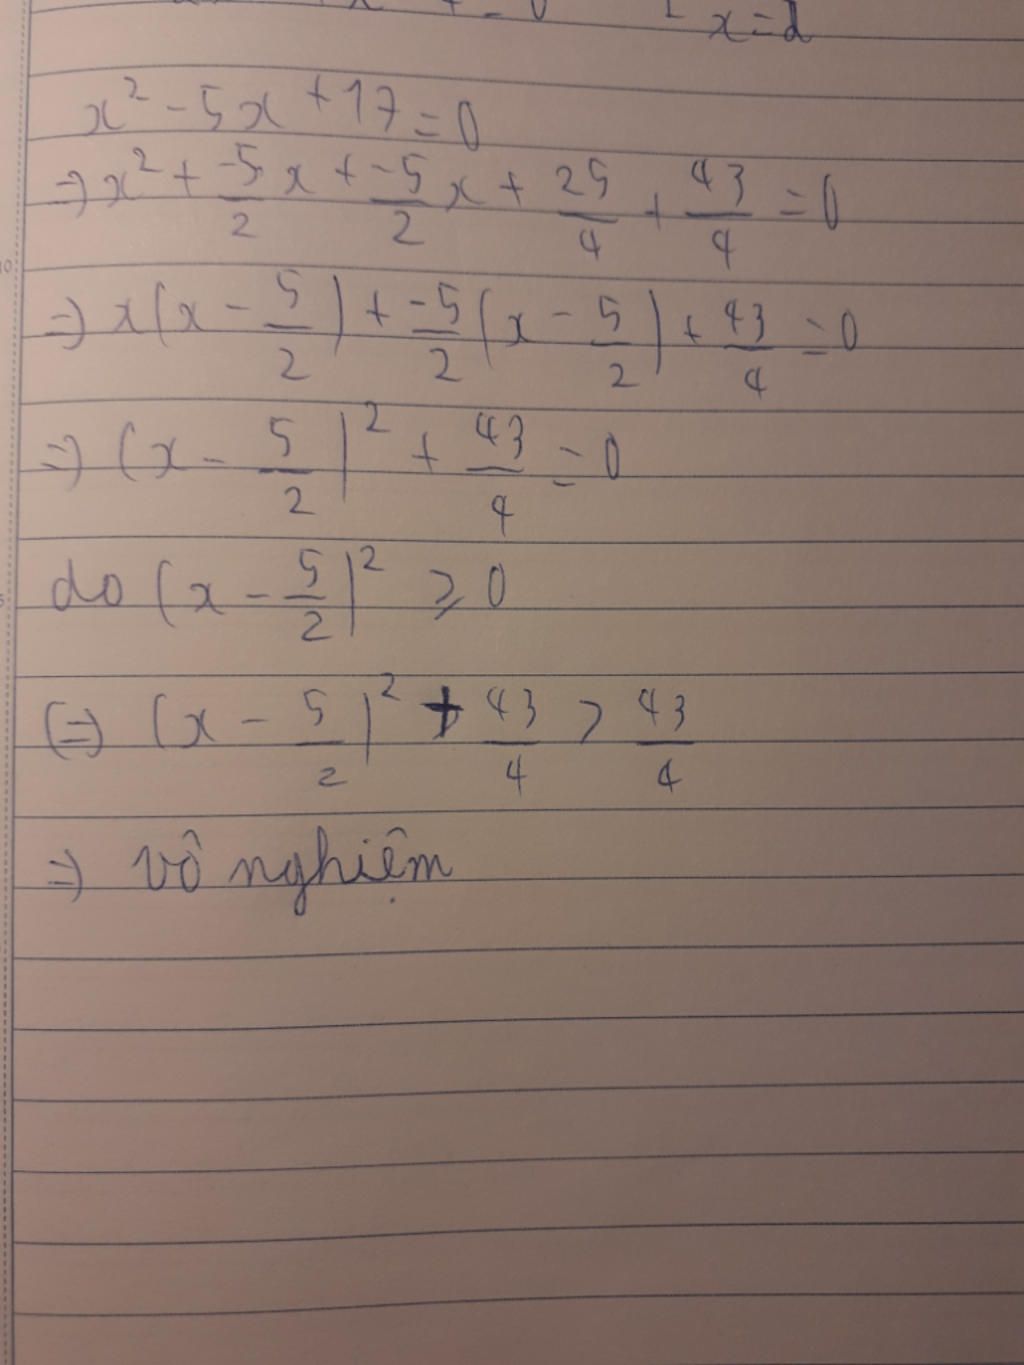 x = 2
x² - 5x + 17 = 0
=) x² + -5/2 x + -5/2 x + 25/4 + 43/4 = 0
=) x(x - 5/2) + -5/2 (x - 5/2) + 43/4 = 0
=) (x - 5/2)² + 43/4 = 0
do (x - 5/2)² ≥ 0
(=) (x - 5/2)² + 43/4 > 43/4
=) vô nghiệm